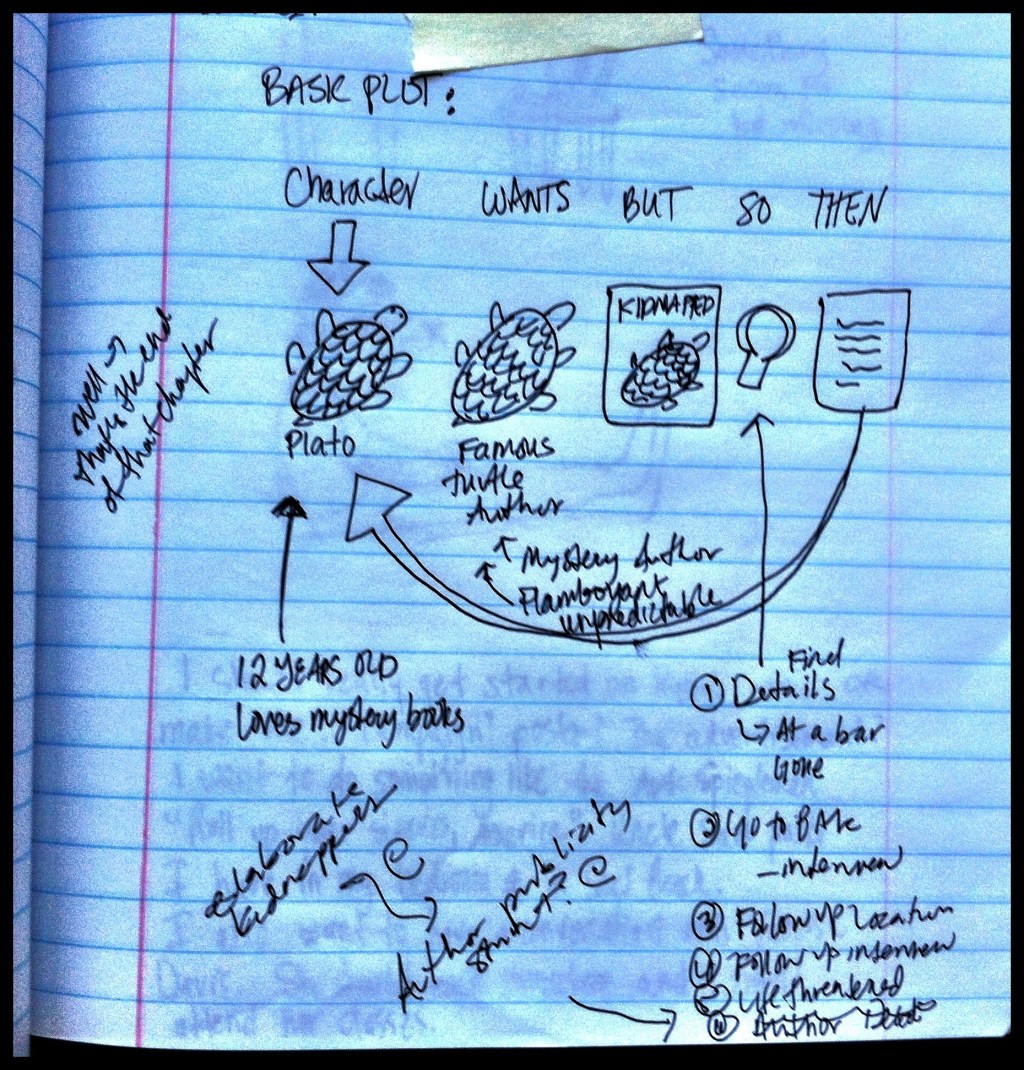 BASIC PLOT:
Character WANTS BUT SO THEN
KIDNAPPED
Well →
that's the end
of that chapter
Plato
Famous
turtle
Author
Mystery Author
Flamboyant
unpredictable
12 YEARS OLD
Loves mystery books
Find
① Details
↳ At a bar
Gone
② Go to BAR
– interview
③ Follow up location
④ Follow up interview
⑤ Life threatened
Author Dead
elaborate
kidnappers
Author publicity
stunt?